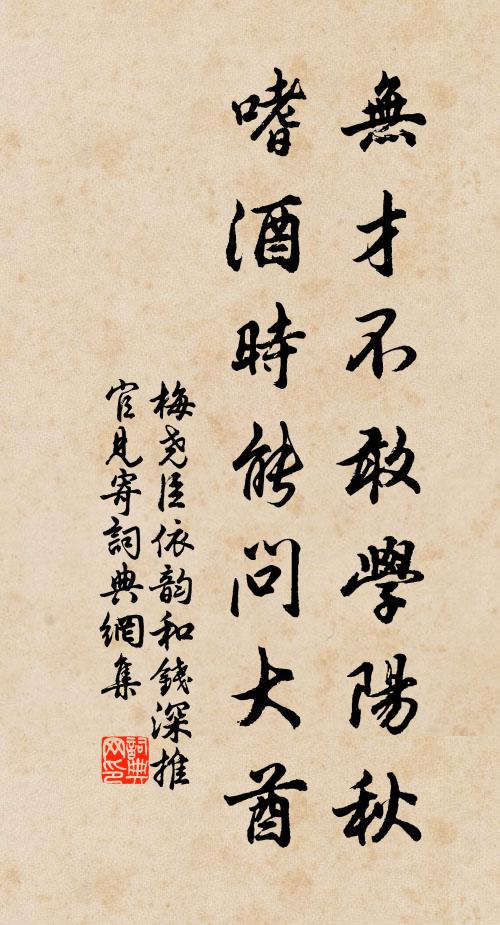 無才不敢學陽秋
嗜酒時能問大酋
梅堯臣依韵和錢深推
官見寄詞典網集
詞典
网印